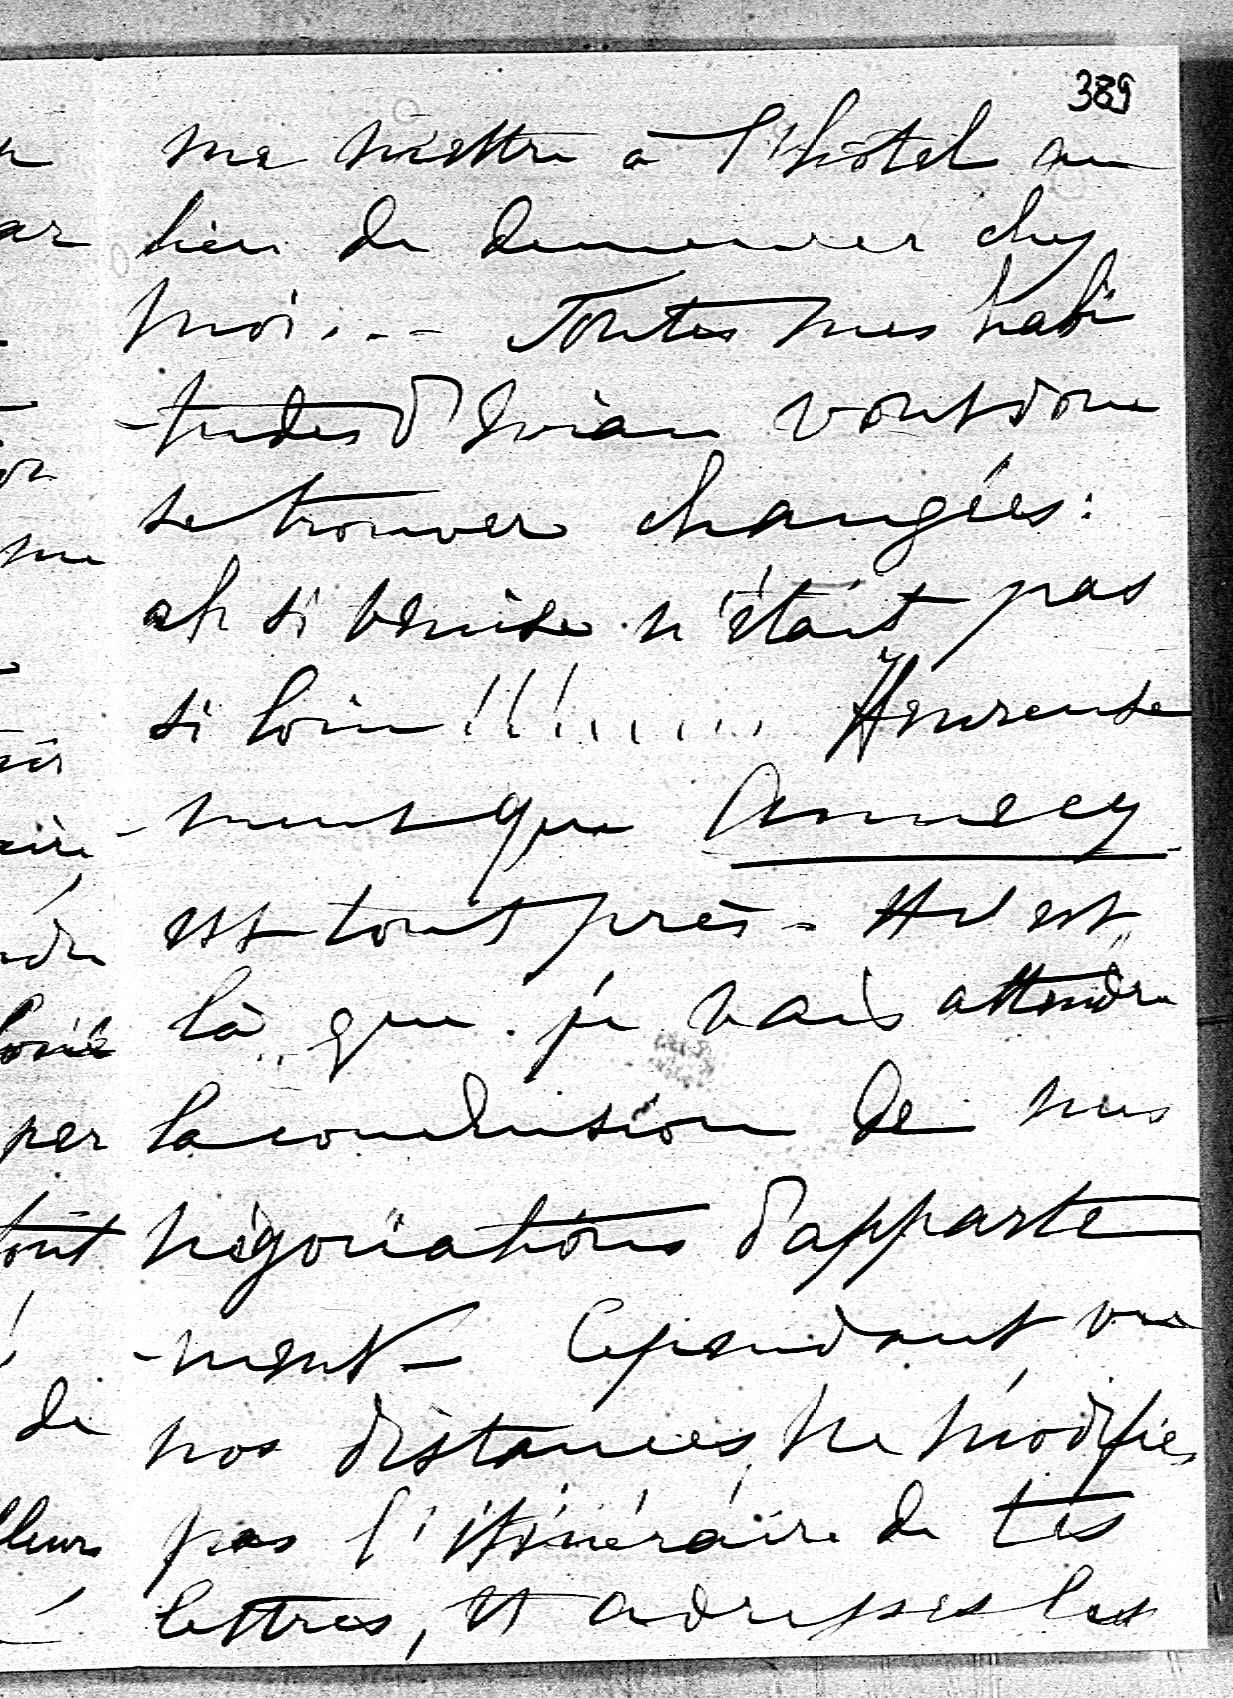 389
me mettre à l'hôtel au
lieu de demeurer chez
moi... - Toutes mes habi
-tudes d'Evian vont donc
se trouver changées :
ah si Venise n'était pas
si loin !!!....... Heureuse
-ment que Annecy
est tout près - Et c'est
là que je vais attendre
la conclusion de mes
négociations d'apparte
-ment - Cependant vu
nos distances, ne modifies
pas l'itinéraire de tes
lettres, et adresses les
ar
on
me
per
tout
de